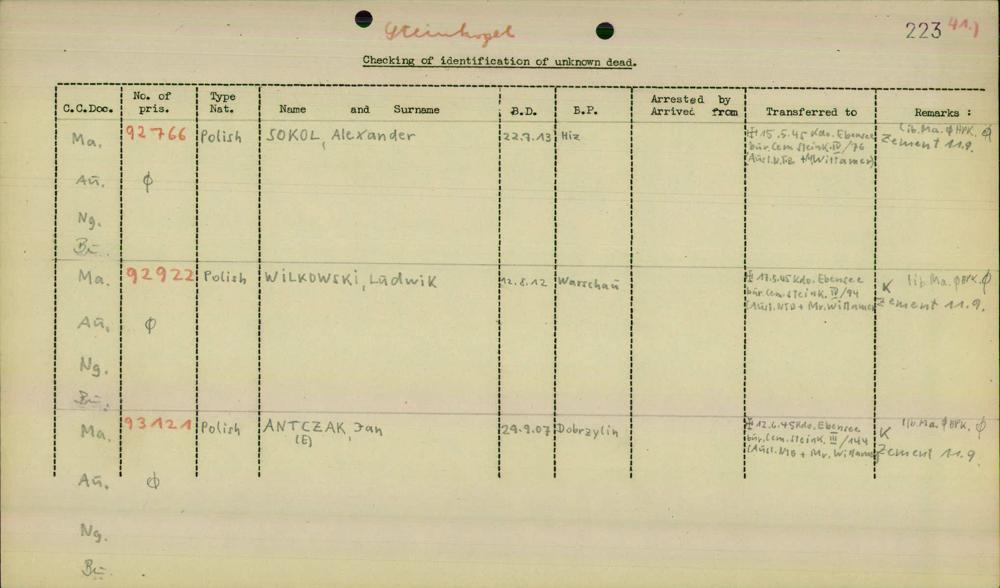 Steinkogel
223 41.)
Checking of identification of unknown dead.
C.C.Doc. No. of pris. Type Nat. Name and Surname B.D. B.P. Arrested by Arrived from Transferred to Remarks :
Ma. 92766 Polish SOKOL, Alexander 22.7.13 Hiz
‡ 15.5.45 Kdo. Ebensee
bür. Cem. Steink. IV/76
lib. Ma. ϕ HPK. ϕ
Zement 11.9.
Aü. ϕ
Ng.
Bü.
Ma. 92922 Polish WILKOWSKI, Ludwik 12.8.12 Warschaü
‡ 17.5.45 Kdo. Ebensee
bür. Cem. Steink. IV/94
K lib. Ma. ϕ HPK. ϕ
Zement 11.9.
Aü. ϕ
Ng.
Bü.
Ma. 93121 Polish ANTCZAK, Jan 29.9.07 Dobrzylin
(E)
‡ 12.6.45 Kdo. Ebensee
bür. Cem. Steink. III/144
K lib. Ma. ϕ HPK. ϕ
Zement 11.9.
Aü. ϕ
Ng.
Bü.